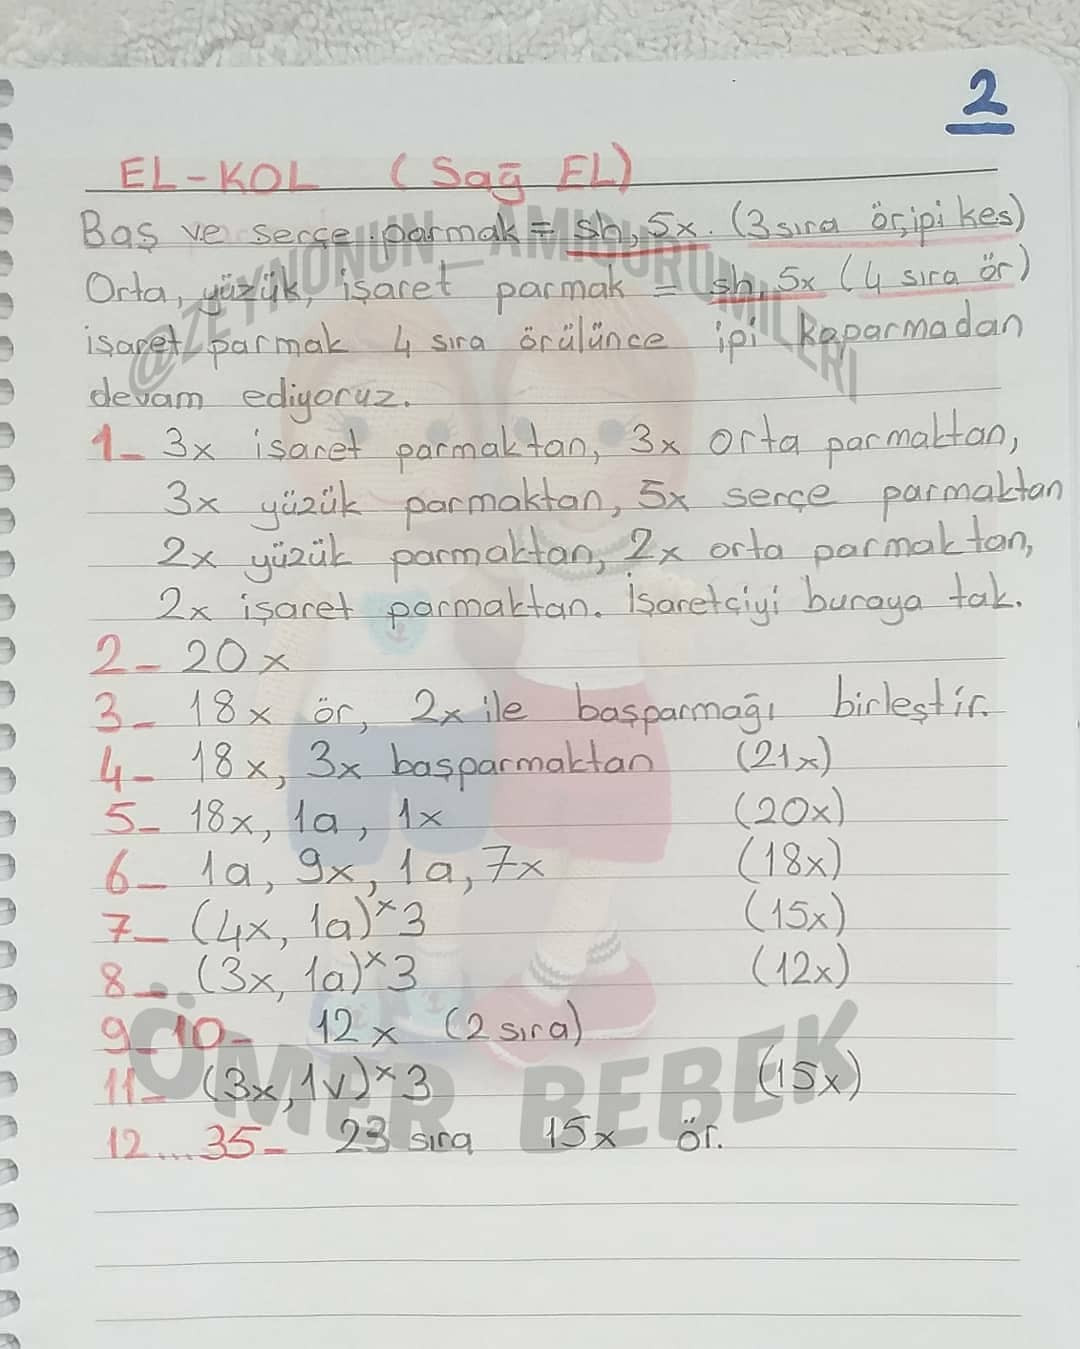 2
EL-KOL (Sağ EL)
Baş ve serçe parmak = sh, 5x. (3 sıra ör, ipi kes)
Orta, yüzük, işaret parmak = sh, 5x (4 sıra ör)
işaret parmak 4 sıra örülünce ipi koparmadan
devam ediyoruz.
1- 3x işaret parmaktan, 3x orta parmaktan,
3x yüzük parmaktan, 5x serçe parmaktan
2x yüzük parmaktan, 2x orta parmaktan,
2x işaret parmaktan. İşaretçiyi buraya tak.
2- 20x
3- 18x ör, 2x ile başparmağı birleştir.
4- 18x, 3x başparmaktan (21x)
5- 18x, 1a, 1x (20x)
6- 1a, 9x, 1a, 7x (18x)
7- (4x, 1a)*3 (15x)
8- (3x, 1a)*3 (12x)
9-10- 12x (2 sıra)
11- (3x, 1v)*3 (15x)
12...35- 23 sıra 15x ör.
@ZEYNONUN_AMIGURUMILERI
ÖMER BEBEK